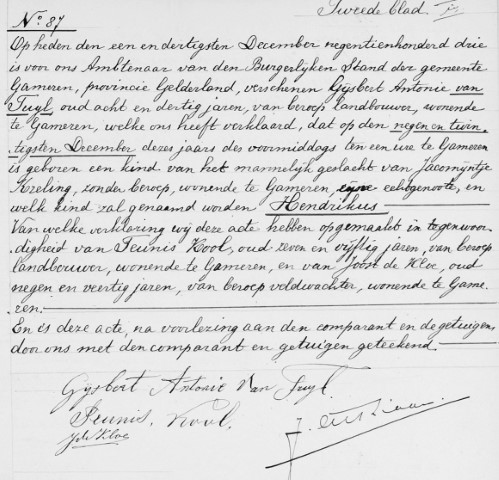 Tweede blad.
No. 87
Op heden den een en dertigsten December negentienhonderd drie
is voor ons Ambtenaar van den Burgerlijken Stand der gemeente
Gameren, provincie Gelderland, verschenen Gijsbert Antonie van
Tuyl, oud acht en dertig jaren, van beroep landbouwer, wonende
te Gameren, welke ons heeft verklaard, dat op den negen en twin-
tigsten December dezes jaars des voormiddags ten een ure te Gameren
is geboren een kind van het mannelijk geslacht van Jacomijntje
Kreling, zonder beroep, wonende te Gameren, zijne echtgenoote, en
welk kind zal genaamd worden Hendrikus
Van welke verklaring wij deze acte hebben opgemaakt in tegenwoor-
digheid van Teunis Kool, oud zeven en vijftig jaren, van beroep
landbouwer, wonende te Gameren, en van Joost de Kloe, oud
negen en veertig jaren, van beroep veldwachter, wonende te Game-
ren.
En is deze acte, na voorlezing aan den comparant en de getuigen
door ons met den comparant en getuigen geteekend.
Gijsbert Antonie Van Tuyl.
Teunis Kool.
J de Kloe